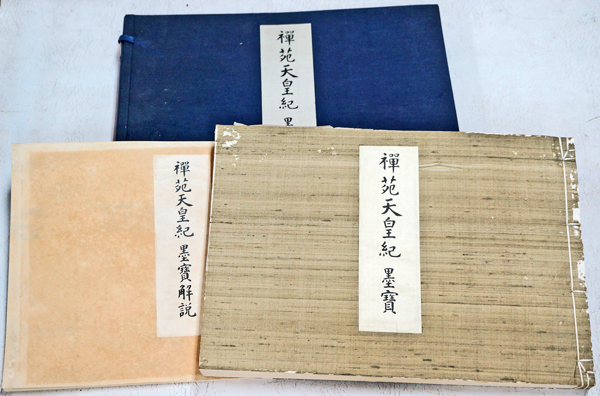 禅苑天皇紀 墨
禅苑天皇紀 墨寶解説
禅苑天皇紀 墨寶